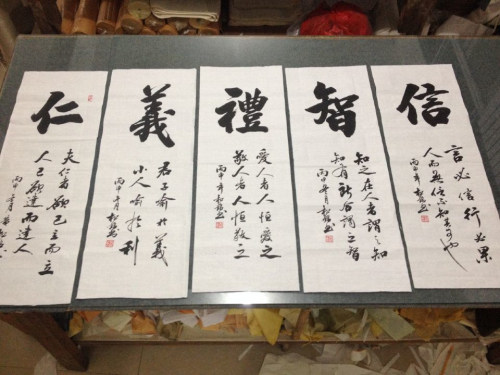 仁
夫仁者欲己立而立
人己欲達而達人
丙申年月
義
君子喻於義
小人喻於利
丙申年月
禮
愛人者人恒愛之
敬人者人恒敬之
丙申年
智
知之在人者謂之知
知有所合謂之智
丙申年月
信
言必信行必果
人而無信不知其可也
丙申年